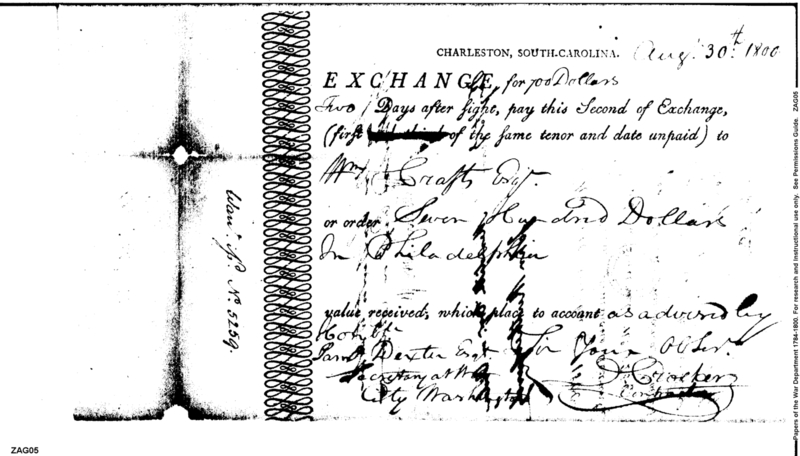 CHARLESTON, SOUTH-CAROLINA. Aug. 30th 1800
EXCHANGE, for 700 Dollars
Two Days after sight, pay this Second of Exchange,
(first of the same tenor and date unpaid) to
Wm Crafts Esqr.
or order Seven Hundred Dollars
In Philadelphia
value received, which place to account as advised by
Honble
Saml Dexter Esqr Sir Your Ob Servt.
Secretary at War D Crocker
City Washington Contractor
Warr. No 5259.
ZAG05
Papers of the War Department 1784-1800. For research and instructional use only. See Permissions Guide. ZAG05